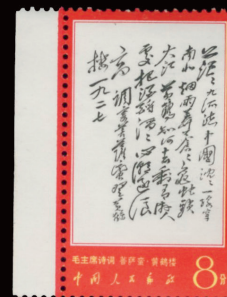 茫茫九派流中國沉沉一線穿
南北烟雨莽蒼蒼龜蛇鎖
大江黄鶴知何去剩有遊人
處把酒酹滔滔心潮逐浪
高 調寄菩薩蠻登黄鶴
樓一九二七
毛主席诗词 菩萨蛮·黄鹤楼
中国人民邮政 8分